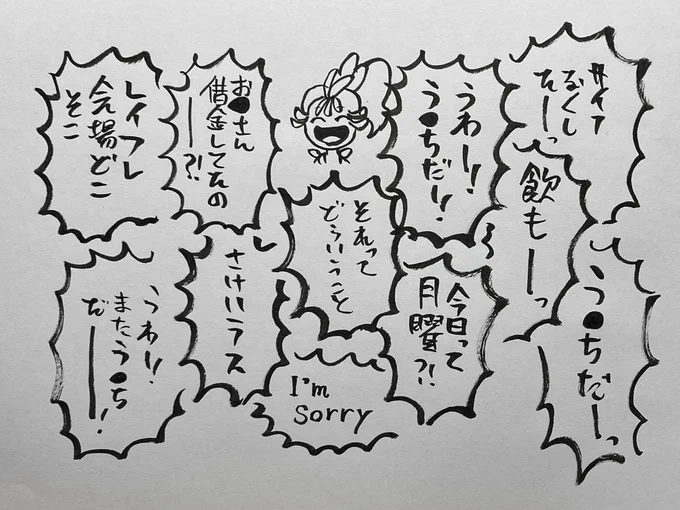 サイフ
なくし
たーっ
飲もーっ
う●ちだーっ
うわー!!
う●ちだ!!
今日って
月曜?!
それって
どういうこと
I'm
Sorry
お●さん
借金してたの
ー?!
さけハラス
レイフレ
会場どこ
そこ
うわ!!
またう●ち
だー!